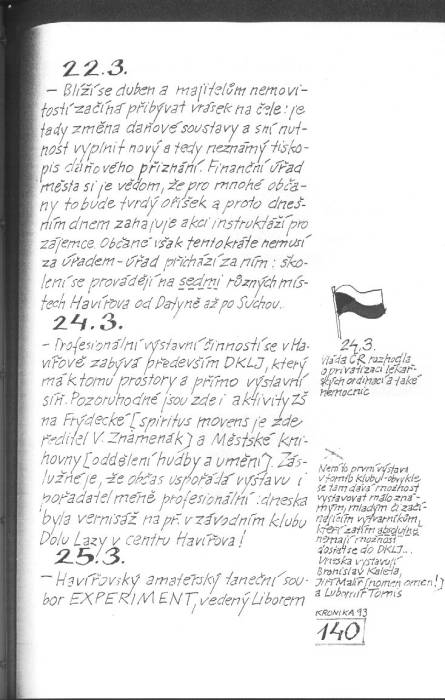 22.3.
– Blíží se duben a majitelům nemovi-
tostí začíná přibývat vrásek na čele: je
tady změna daňové soustavy a s ní nut-
nost vyplnit nový a tedy neznámý tisko-
pis daňového přiznání. Finanční úřad
města si je vědom, že pro mnohé obča-
ny to bude tvrdý oříšek a proto dneš-
ním dnem zahajuje akci instruktáží pro
zájemce. Občané však tentokráte nemusí
za úřadem – úřad přichází za ním: ško-
lení se provádějí na sedmi různých mís-
tech Havířova od Datyně až po Suchou.
24.3.
– Profesionální výstavní činností se v Ha-
vířově zabývá především DKLJ, který
má k tomu prostory a přímo výstavní
síň. Pozoruhodné jsou zde i aktivity ZŠ
na Frýdecké [spiritus movens je zde
ředitel V. Znamenák] a Městské kni-
hovny [oddělení hudby a umění]. Zás-
lužné je, že občas uspořádá výstavu i
pořadatel méně profesionální: dneska
byla vernisáž na př. v závodním klubu
Dolu Lazy v centru Havířova!
25.3.
– Havířovský amatérský taneční sou-
bor EXPERIMENT, vedený Liborem
24.3.
vláda ČR rozhodla
o privatizaci lékař-
ských ordinací a také
nemocnic
Není to první výstava
v tomto klubu: obvykle
se tam dává možnost
vystavovat málo zná-
mým, mladým či začí-
najícím výtvarníkům,
kteří zatím absolutně
nemají možnost
dostat se do DKLJ...
Dneska vystavují
Branislav Kaleta,
Jiří Malíř [nomen omen!]
a Lubomír Tomis
KRONIKA 93
140